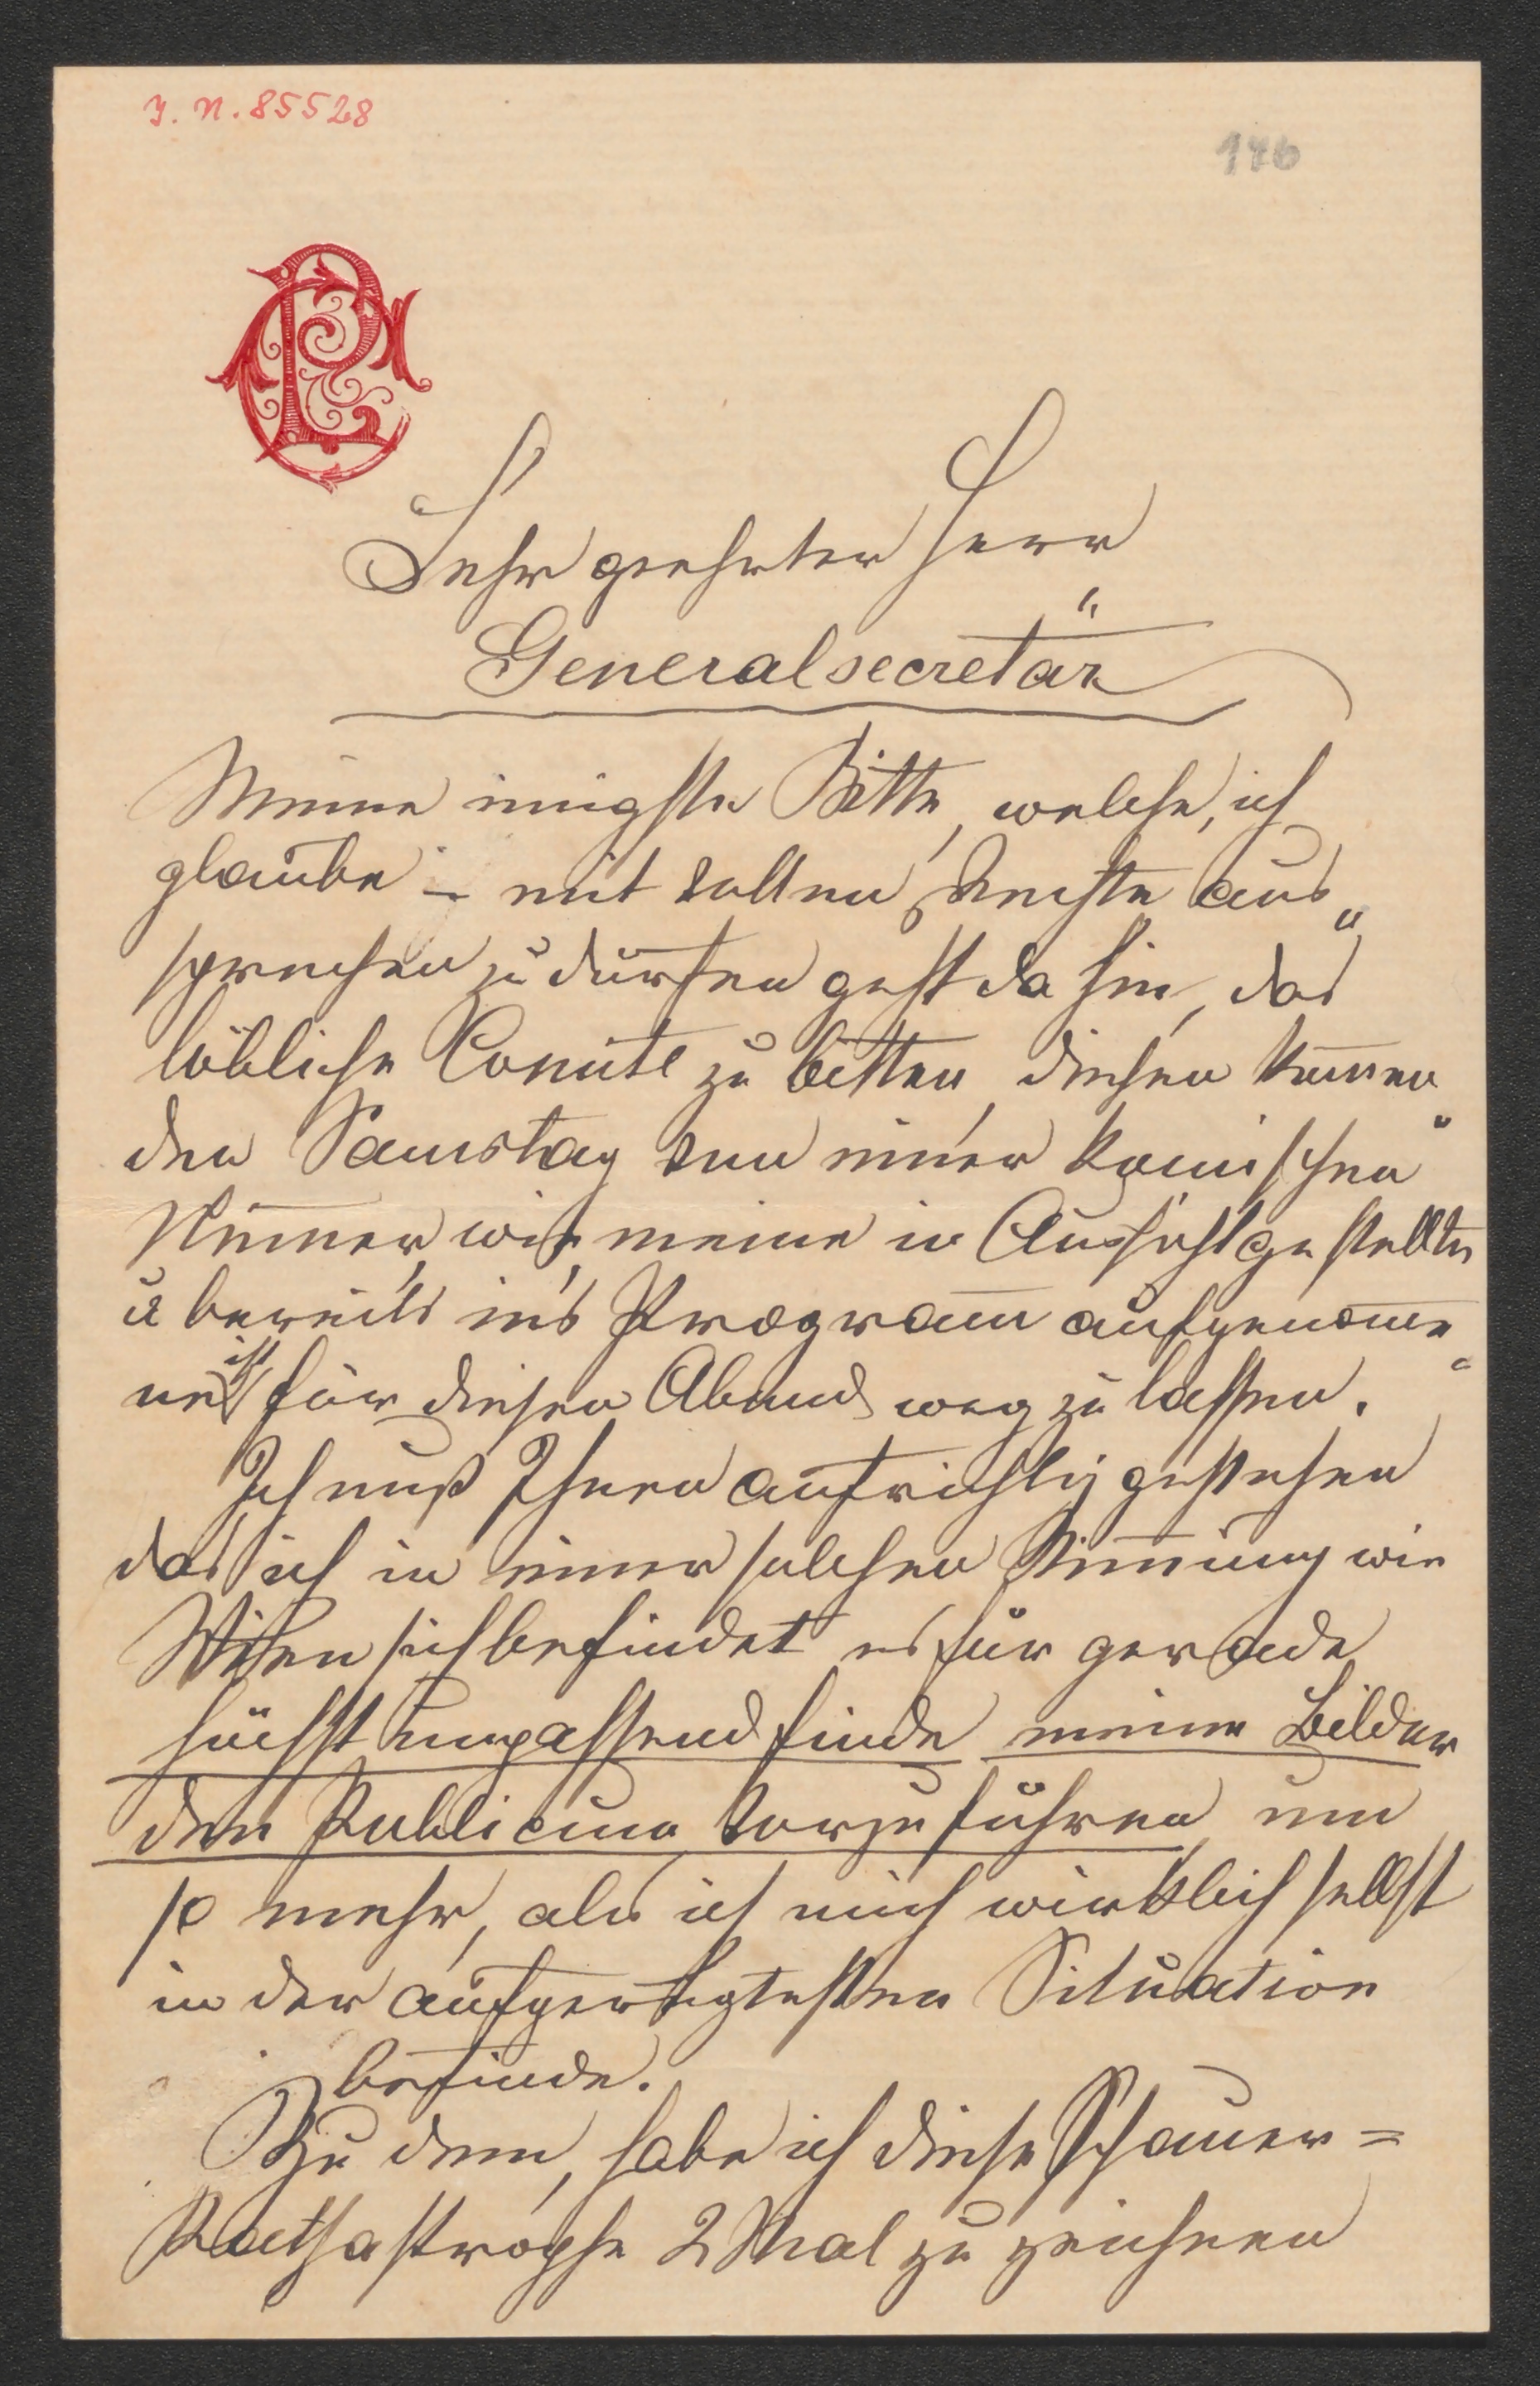 J. N. 85528
146
Sehr geehrter Herr
Generalsecretär
Meine innigste Bitte, welche, ich
glaube – mit vollem Rechte aus„
sprechen zu dürfen geht da hin, das
löbliche Comité zu bitten diesen kom̅en„
den Samstag von einer komischen
Num̅er, wie meine in Aussicht gestellte
u bereits in's Program̅ aufgenom̅e„
ne ist für diesen Abend weg zu lassen.
Ich muß Ihnen aufrichtig gestehen
das ich in einer solchen Stim̅ung wie
Wien sich befindet es für gerade
höchst unpassend finde meine Bilder
dem Publicum vorzuführen um
so mehr, als ich mich wirklich selbst
in der aufgeregtesten Situation
befinde.
Zu dem, habe ich diese Schauer=
Kathastrophe 2 Mal zu zeichnen